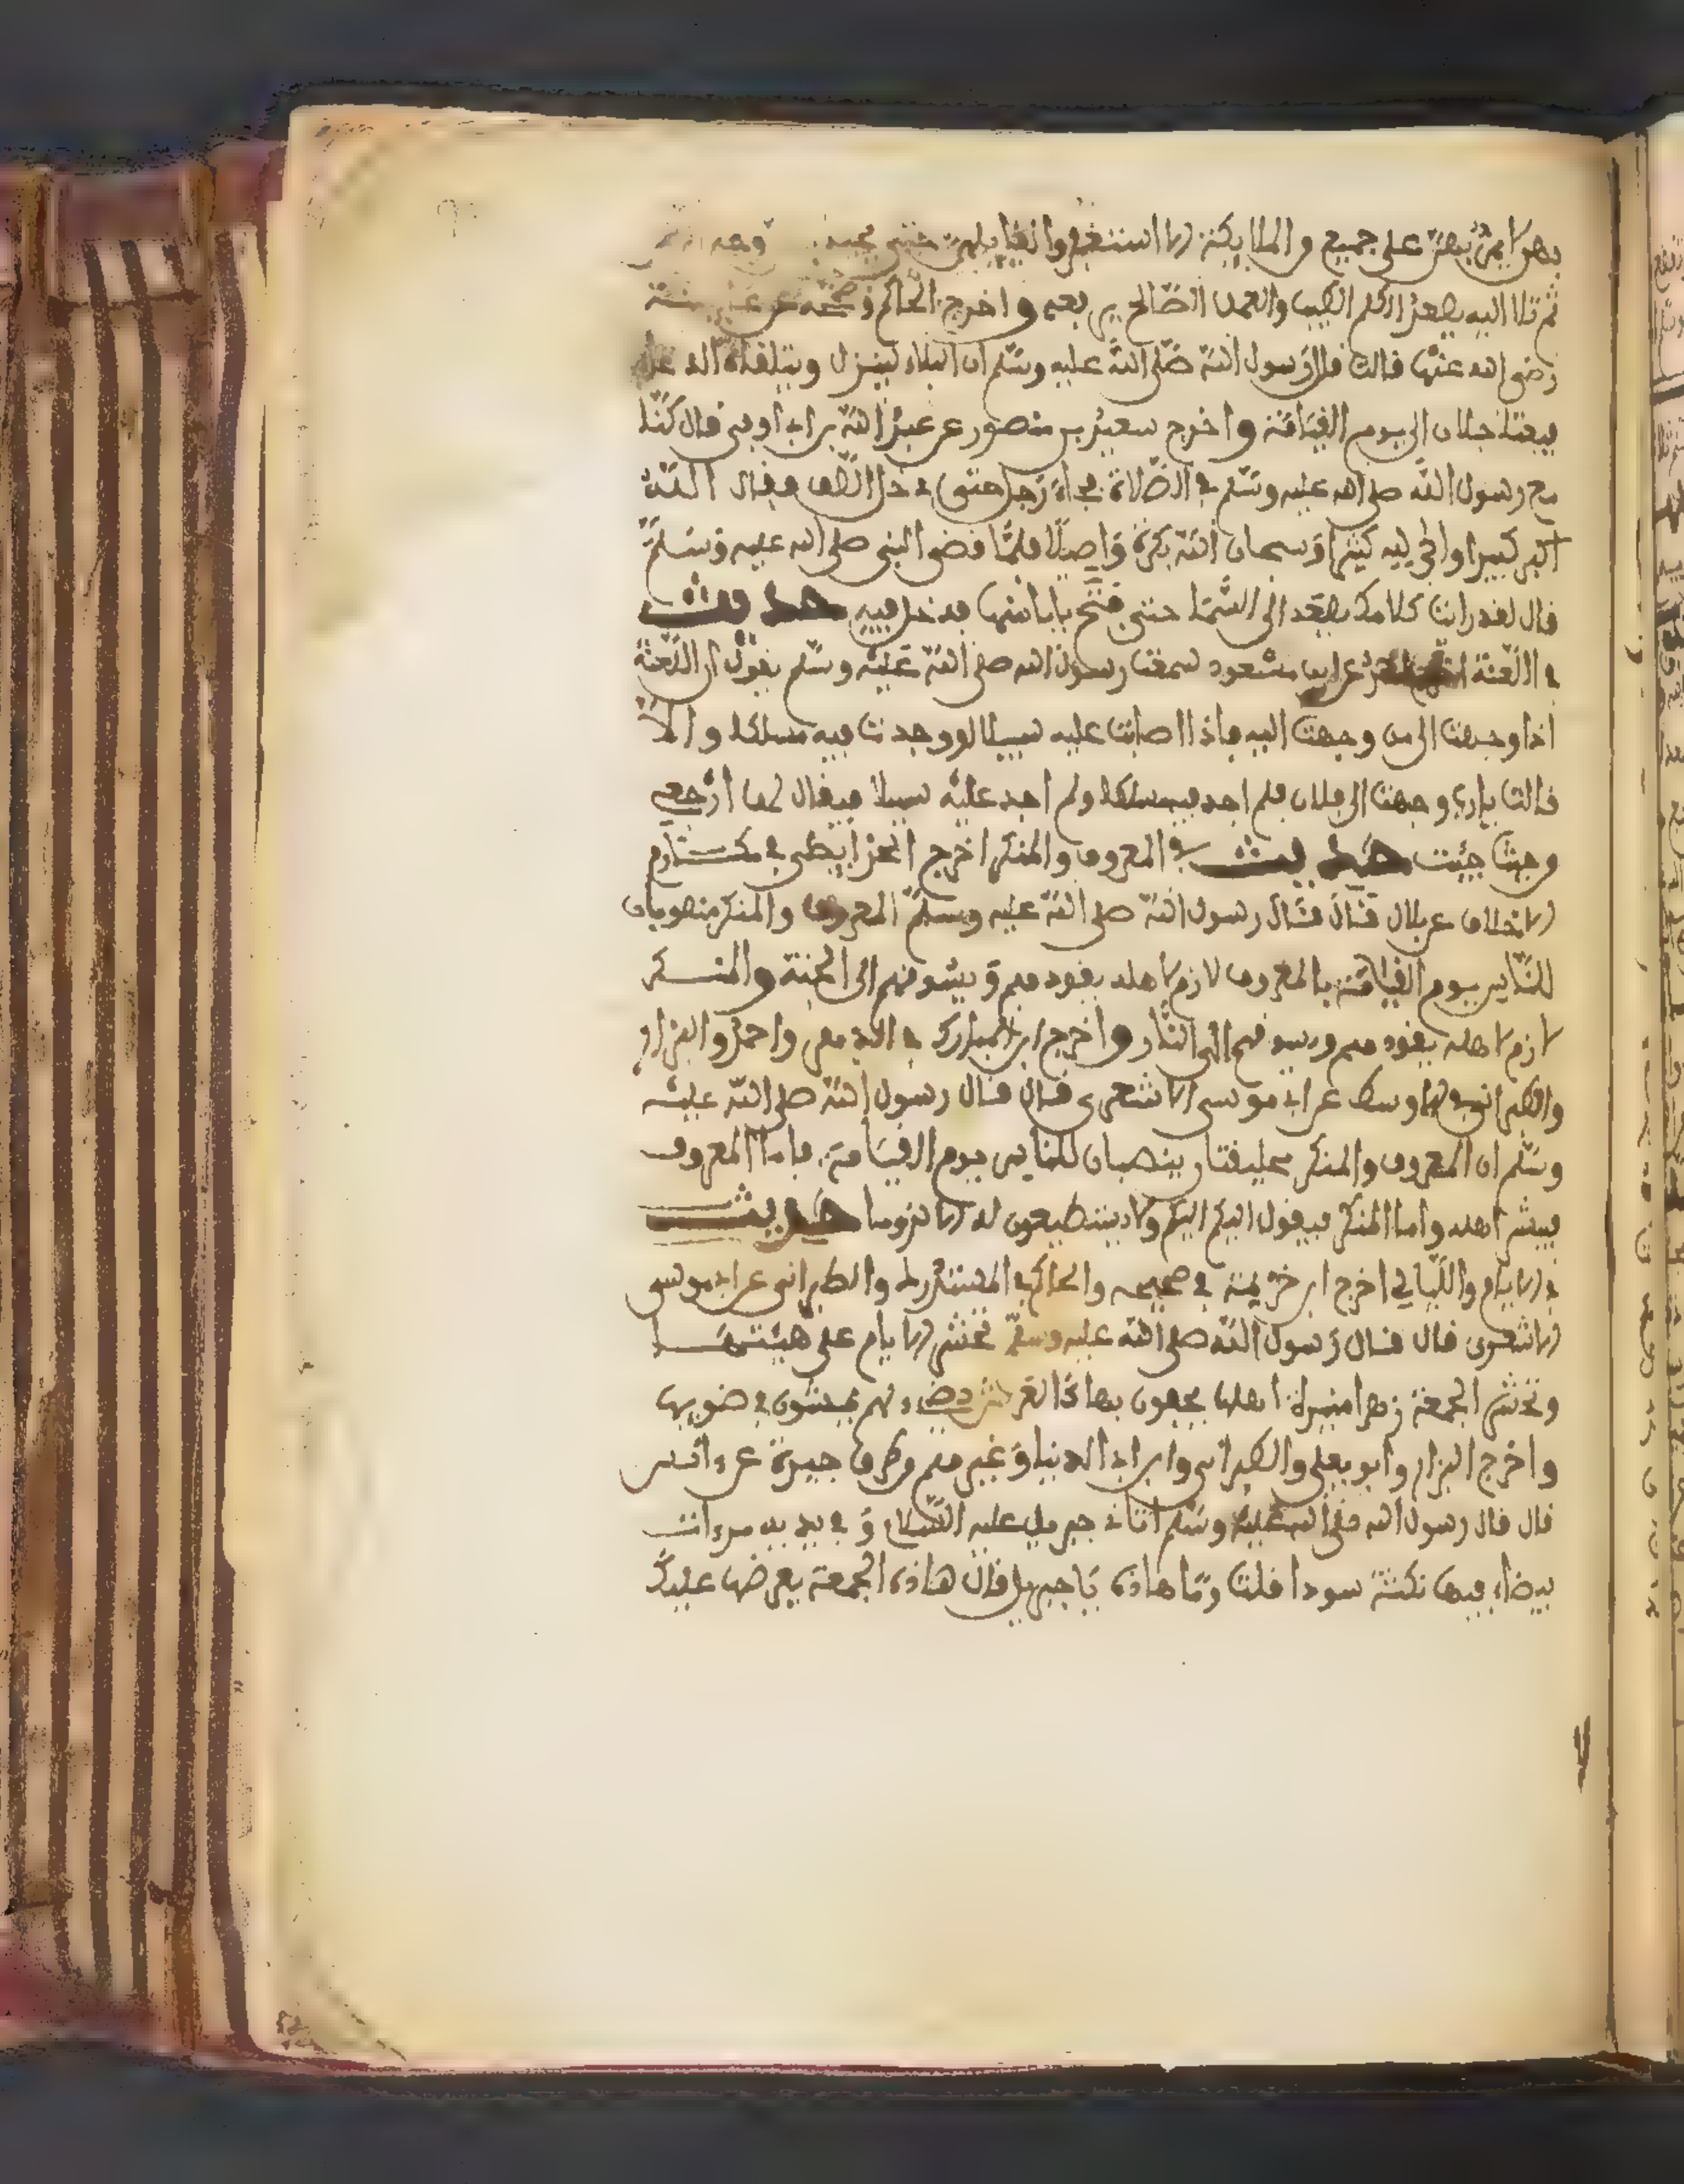 بهن لا يمر بهن على جميع من الملايكة الا استغفروا لقايلهن حتى يجيء وجه
ثم تلا اليه يصعد الكلم الطيب والعمل الصالح يرفعه واخرج الحاكم وصححه عن عايشة
رضي الله عنها قالت قال رسول الله صلى الله عليه وسلم ان البلاء لينزل ويتلقاه الدعاء
فيعتلجان الى يوم القيامة واخرج سعيد بن منصور عن عبد الله بن ابي اوفى قال كنا
مع رسول الله صلى الله عليه وسلم في الصلاة فجاء رجل حتى دخل الصف فقال الله
اكبر كبيرا والحمد لله كثيرا وسبحان الله بكرة واصيلا فلما قضى النبي صلى الله عليه وسلم
قال لقد رايت كلامك يصعد الى السما حتى فتح بابا منها فدخل فيه حديث
في اللعنة عن ابن مسعود سمعت رسول الله صلى الله عليه وسلم يقول ان اللعنة
اذا وجهت الى من وجهت اليه فاذا اصابت عليه سبيلا او وجدت فيه مسلكا والا
قالت يا رب وجهت الى فلان فلم اجد فيه مسلكا ولم اجد عليه سبيلا فيقال لها ارجعي
من حيث جيت حديث في المعروف والمنكر اخرج الخرايطي في مكارم
الاخلاق عن بلال قال قال رسول الله صلى الله عليه وسلم المعروف والمنكر منصوبان
للناس يوم القيامة فالمعروف لازم لاهله يقودهم ويسوقهم الى الجنة والمنكر
لازم لاهله يقودهم ويسوقهم الى النار واخرج ابن المبارك في واحمد والبزار
والطبراني في الاوسط عن ابي موسى الاشعري قال قال رسول الله صلى الله عليه
وسلم ان المعروف والمنكر خليقتان ينصبان للناس يوم القيامة فاما المعروف
فيبشر اهله واما المنكر فيقول اليكم اليكم ولا يستطيعون له الا لزوما حديث
في الايام والليالي اخرج ابن خزيمة في صحيحه والحاكم في المستدرك والطبراني عن ابي موسى
الاشعري قال قال رسول الله صلى الله عليه وسلم تحشر الايام على هيئتها
وتحشر الجمعة زهرا منيرة اهلها يحفون بها كالعروس تضيء لهم يمشون في ضويها
واخرج البزار وابو يعلى والطبراني وابن ابي الدنيا وغيرهم من طرق جيدة عن انس
قال قال رسول الله صلى الله عليه وسلم اتاني جبريل عليه السلام وفي يديه مرءات
بيضاء فيها نكتة سودا فقلت وما هاذه يا جبريل قال هاذه الجمعة يعرضها عليك